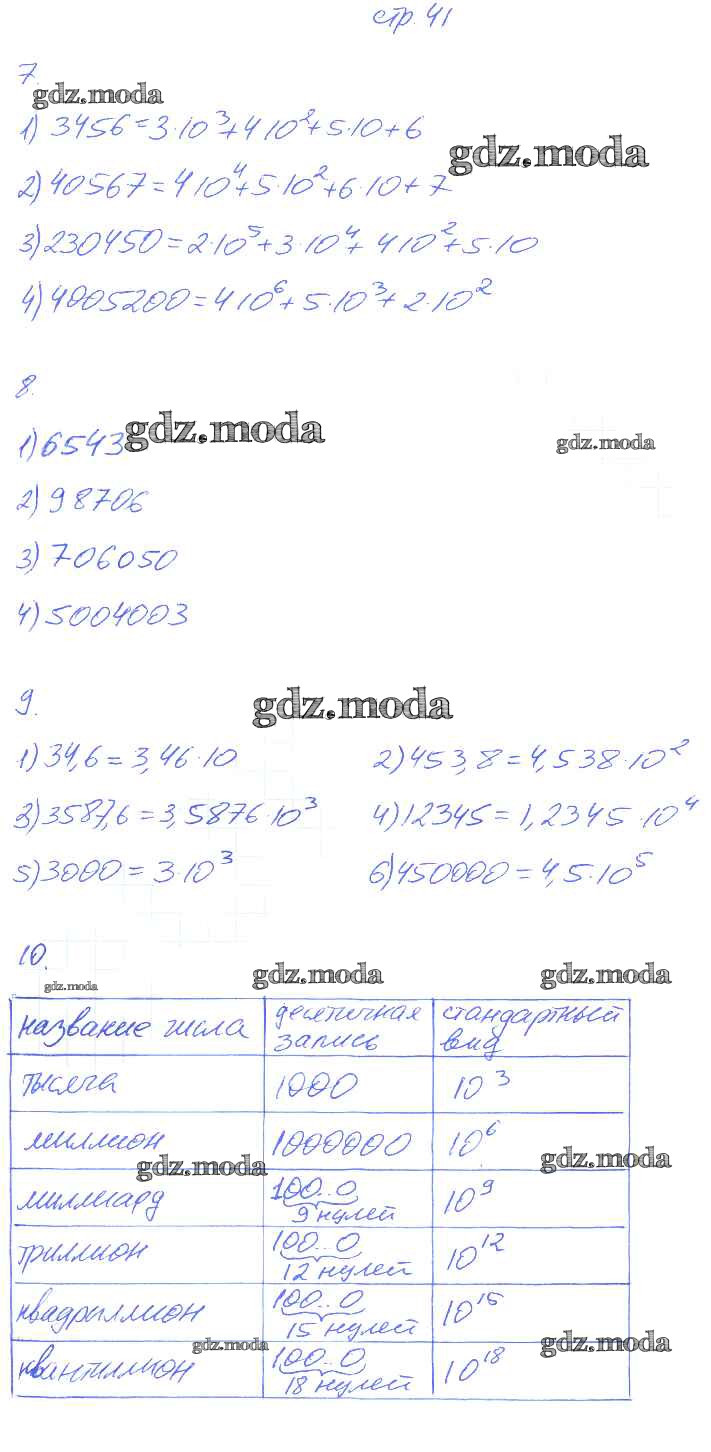 стр. 41
7.
gdz.moda
1) 3456=3·10³+4 10²+5·10+6
gdz.moda
2) 40567=4 10⁴+5·10²+6·10+7
3) 230450=2·10⁵+3·10⁴+4 10²+5·10
4) 4005200=4 10⁶+5·10³+2·10²
8.
gdz.moda
1) 6543
gdz.moda
2) 98706
3) 706050
4) 5004003
9.
gdz.moda
1) 34,6=3,46·10 2) 453,8=4,538·10²
3) 3587,6=3,5876·10³ 4) 12345=1,2345·10⁴
5) 3000=3·10³ 6) 450000=4,5·10⁵
10.
gdz.moda gdz.moda gdz.moda
название числа десятичная запись стандартный вид
тысяча 1000 10³
миллион 1000000 10⁶
gdz.moda gdz.moda
миллиард 100..0 9 нулей 10⁹
триллион 100..0 12 нулей 10¹²
квадриллион 100..0 15 нулей 10¹⁵
gdz.moda gdz.moda
квантиллион 100..0 18 нулей 10¹⁸